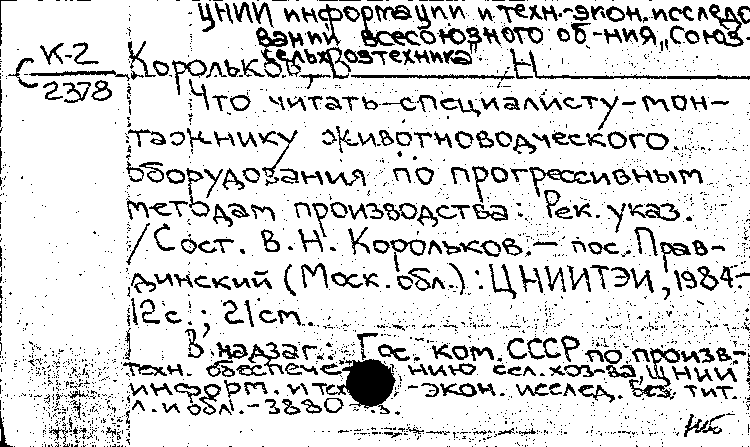 ЦНИИ информации и техн.-экон. исследо
ваний всесоюзного об-ния „Союз-
сельхозтехника".
К-2
С 2378
Корольков, В Н
Что читать специалисту-мон-
тажнику животноводческого
оборудования по прогрессивным
методам производства: Рек. указ.
/Сост. В.Н. Корольков.- пос. Прав-
динский (Моск. обл.): ЦНИИТЭИ, 1984.-
12 с.; 21 cm.
В надзаг.: Гос. ком. СССР по произв-
техн. обеспече нию сел. хоз-ва, ЦНИИ
информ. и тех -экон. исслед. Без тит.
л. и обл.-3880 з.